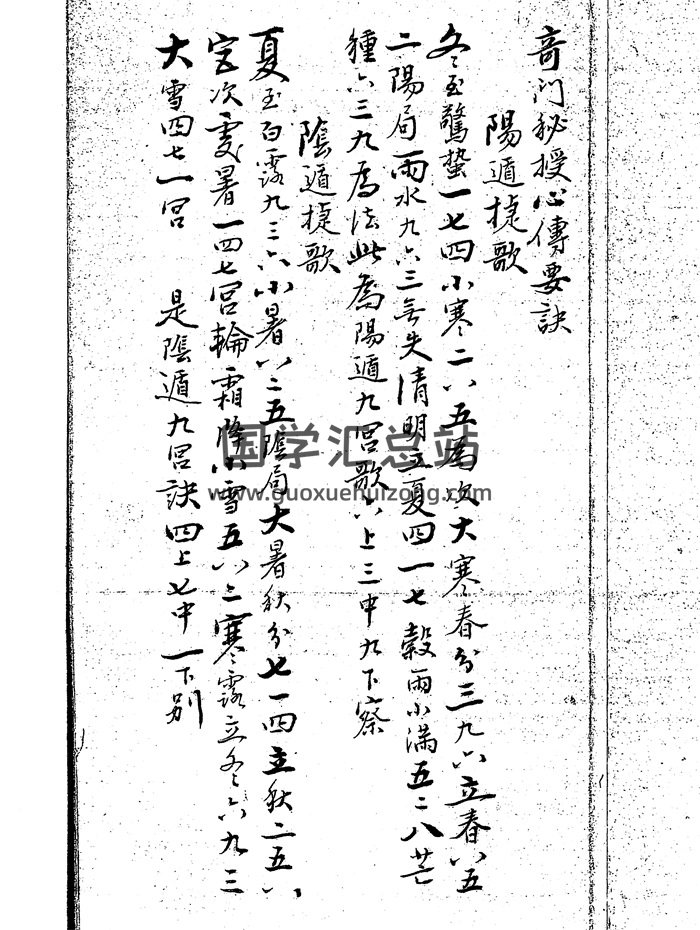 奇门秘授心傳要訣
陽遁捷歌
冬至驚蛰一七四小寒二八五為次大寒春分三九六立春八五
二陽局雨水九六三無失清明立夏四一七穀雨小满五二八芒
種六三九為法此為陽遁九宫歌六上三中九下察
陰遁捷歌
夏至白露九三六小暑八二五陰局大暑秋分七一四立秋二五八
宫次處暑一四七宫輪霜降小雪五八二寒露立冬六九三
大雪四七一宫 是陰遁九宫訣四上七中一下别
国学汇总站
www.guoxuehuizong.com